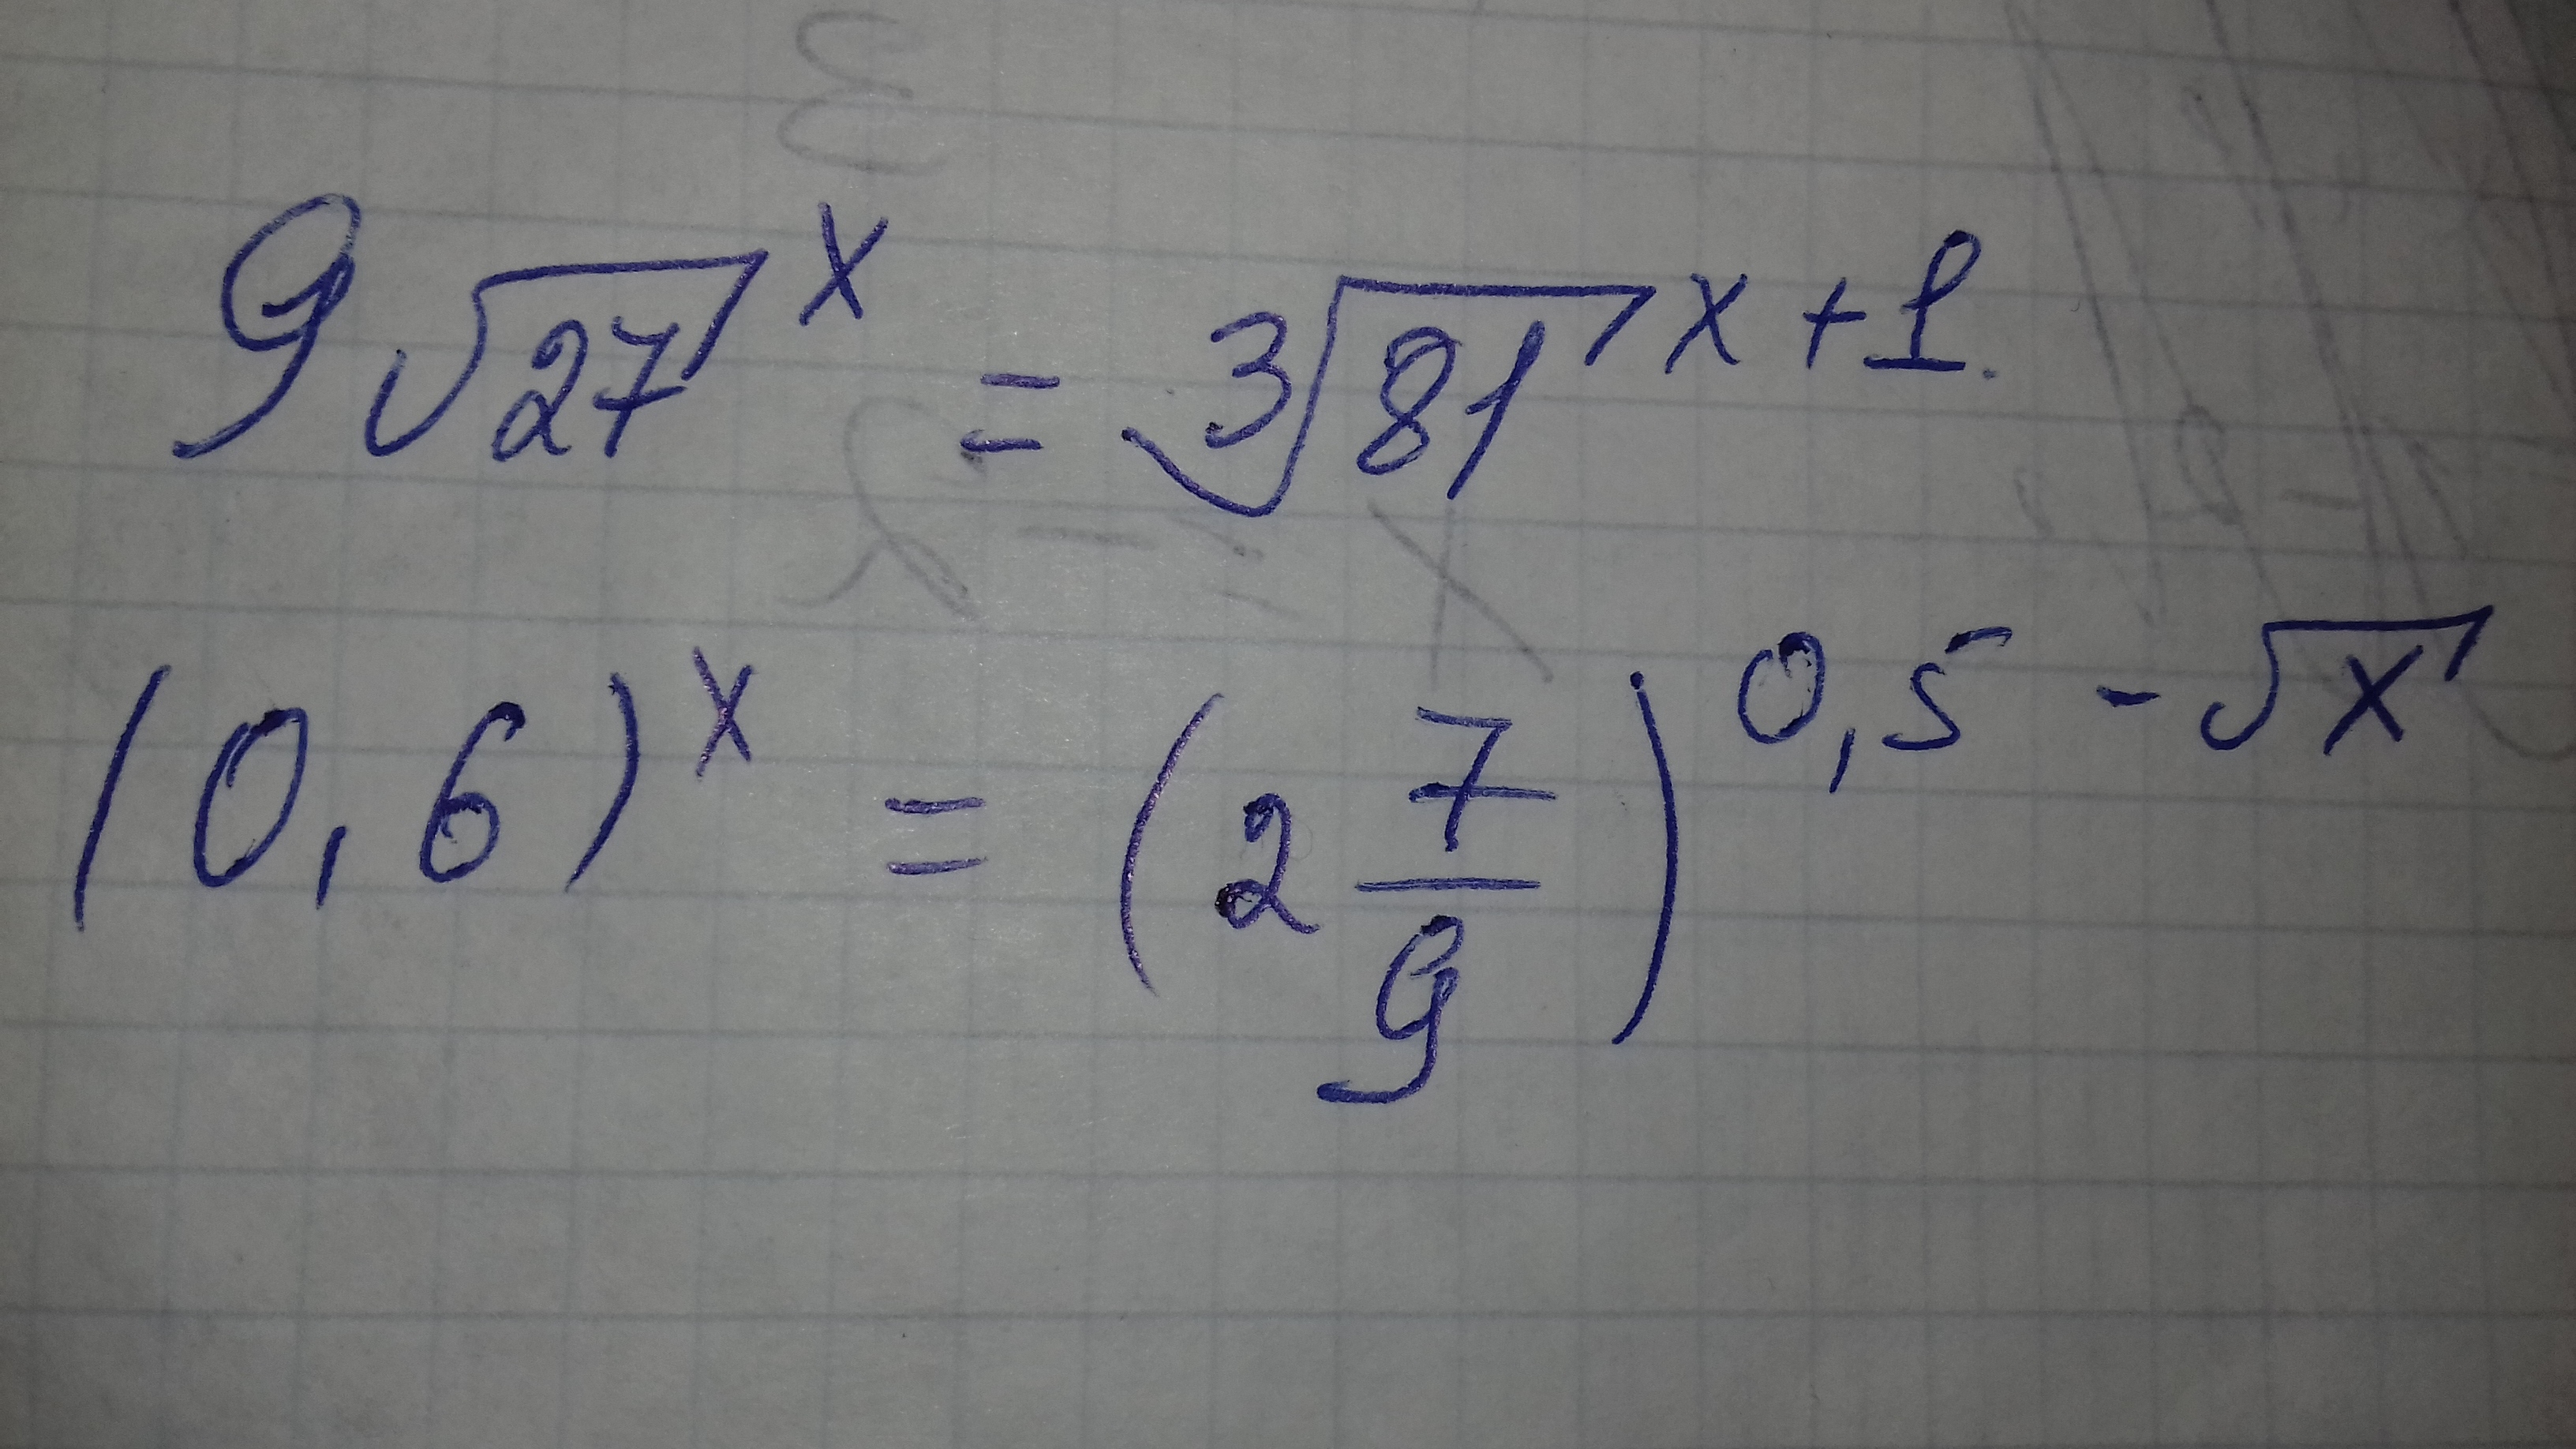 9√27^x = ∛81^(x+1).
(0,6)^x = (2 7/9)^(0,5-√x)